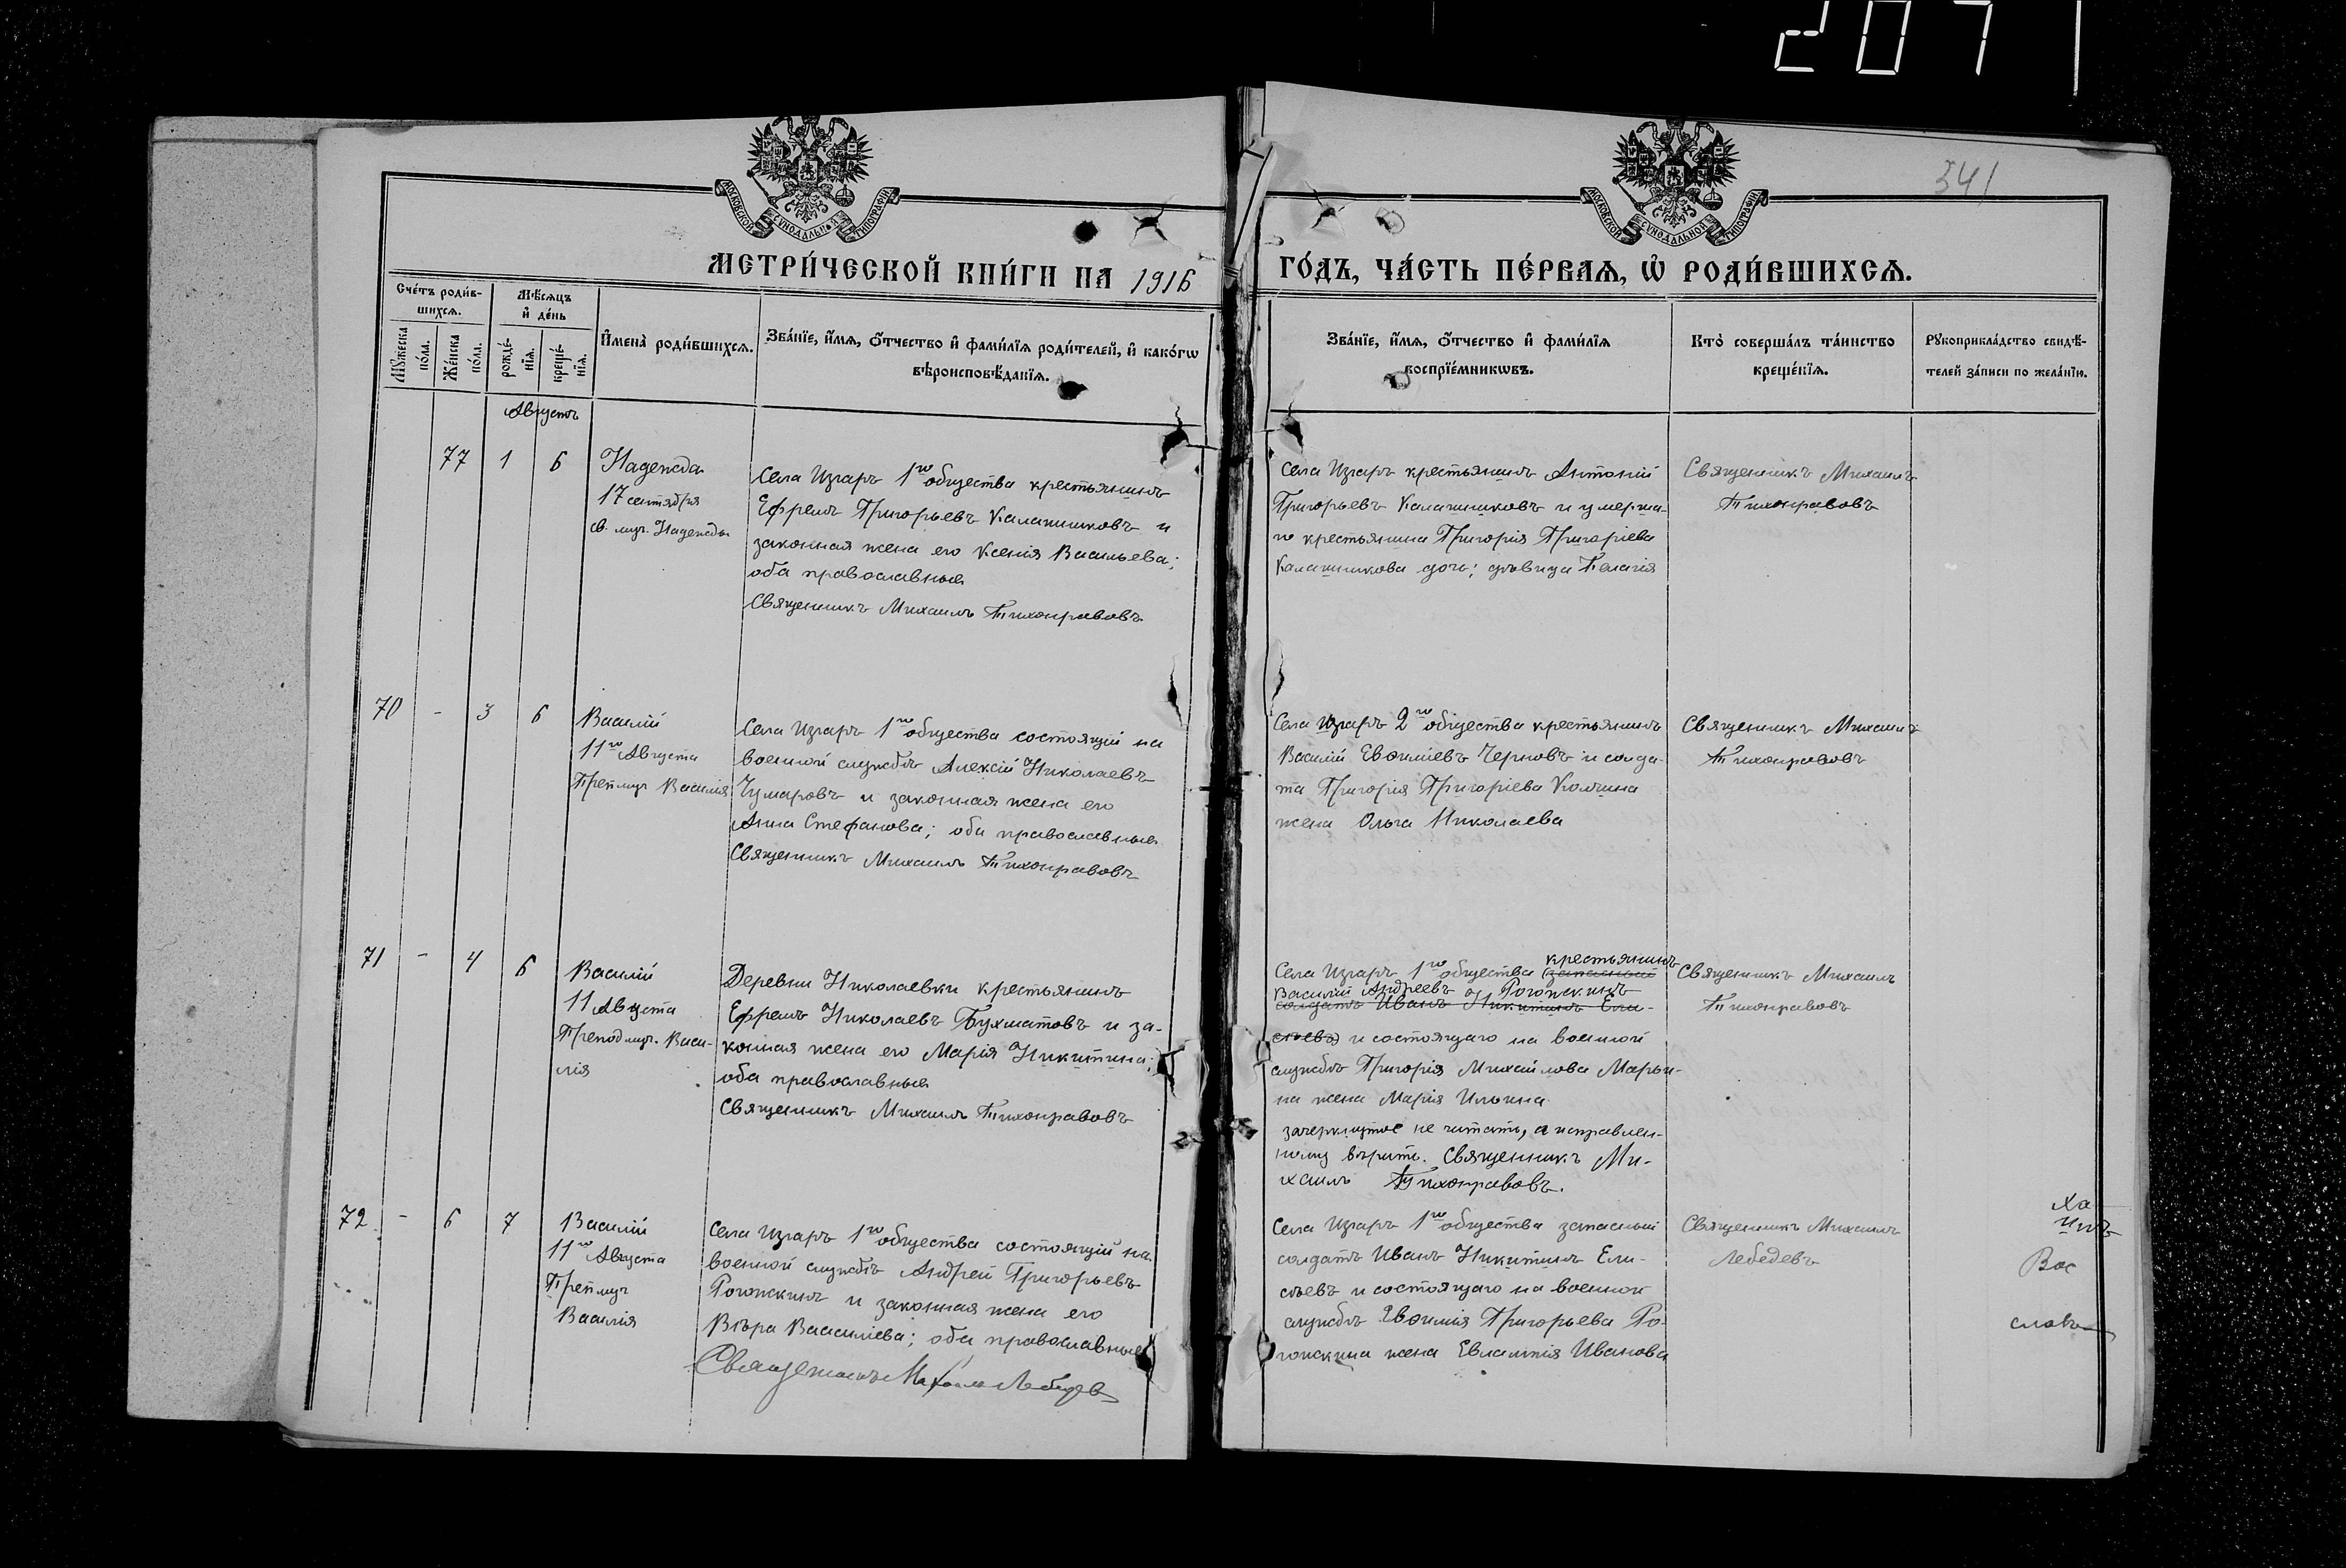 2071
МОСКОВСКОЙ СѴНОДАЛЬНОЙ ТИПОГРАФІИ
МОСКОВСКОЙ СѴНОДАЛЬНОЙ ТИПОГРАФІИ
341
МЕТРИ́ЧЕСКОЙ КНИ́ГИ НА 1916
ГО́ДЪ, ЧА́СТЬ ПЕ́РВАѦ, Ѡ҆ РОДИ́ВШИХСѦ.
Сче́тъ роди́в-
шихсѧ.
Мѣ́сѧцъ
и҆ де́нь
Мꙋ́жеска
по́ла.
Же́нска
по́ла.
рожде́-
нїѧ.
креще́-
нїѧ.
И҆мена̀ роди́вшихсѧ.
Зва́нїе, и҆́мѧ, ѻ҆́тчество и҆ фами́лїѧ роди́телей, и҆ како́гѡ
вѣ̀роисповѣ́данїѧ.
Зва́нїе, и҆́мѧ, ѻ҆́тчество и҆ фами́лїѧ
воспрїе́мникѡвъ.
Кто̀ соверша́лъ та́инство
креще́нїѧ.
Рꙋкоприкла́дство свидѣ́-
телей за́писи по жела́нїю.
Августъ
77 1 6
Надежда
17 сентября
св. муч. Надежды
Села Изгаръ 1го общества крестьянинъ
Ефремъ Григорьевъ Калашниковъ и
законная жена его Ксенія Васильева;
оба православные
Священникъ Михаилъ Тихонравовъ
Села Изгаръ крестьянинъ Антоній
Григорьевъ Калашниковъ и умерша-
го крестьянина Григорія Григоріева
Калашникова дочь; дѣвица Пелагія
Священникъ Михаилъ
Тихонравовъ
70 - 3 6
Василій
11го Августа
Преп муч Василія
Села Изгаръ 1го общества состоящій на
военной службѣ Алексій Николаевъ
Чумаровъ и законная жена его
Анна Стефанова; оба православные
Священникъ Михаилъ Тихонравовъ
Села Изгаръ 2го общества крестьянинъ
Василій Евѳиміевъ Черновъ и солда-
та Григорія Григоріева Колчина
жена Ольга Николаева
Священникъ Михаилъ
Тихонравовъ
71 - 4 6
Василій
11 Августа
Препод муч. Васи-
лія
Деревни Николаевки крестьянинъ
Ефремъ Николаевъ Бухматовъ и за-
конная жена его Марія Никитина;
оба православные
Священникъ Михаилъ Тихонравовъ
крестьянинъ
Села Изгаръ 1го общества (запасный
Василій Андреевъ Рогожкинъ
солдатъ Иванъ Никитинъ Ели-
сѣевъ) и состоящаго на военной
службѣ Григорія Михайлова Марьи-
на жена Марія Ильина
зачеркнутое не читать, а исправлен-
ному вѣрить. Священникъ Ми-
хаилъ Тихонравовъ.
Священникъ Михаилъ
Тихонравовъ
72 - 6 7
Василій
11го Августа
Преп муч
Василія
Села Изгаръ 1го общества состоящій на
военной службѣ Андрей Григорьевъ
Рогожкинъ и законная жена его
Вѣра Василіева; оба православные
Священникъ Михаилъ Лебедев
Села Изгаръ 1го общества запасный
солдатъ Иванъ Никитинъ Ели-
сѣевъ и состоящаго на военной
службѣ Евѳимія Григорьева Ро-
гожкина жена Евлампія Иванова
Священникъ Михаилъ
Лебедевъ
Ха
Вас